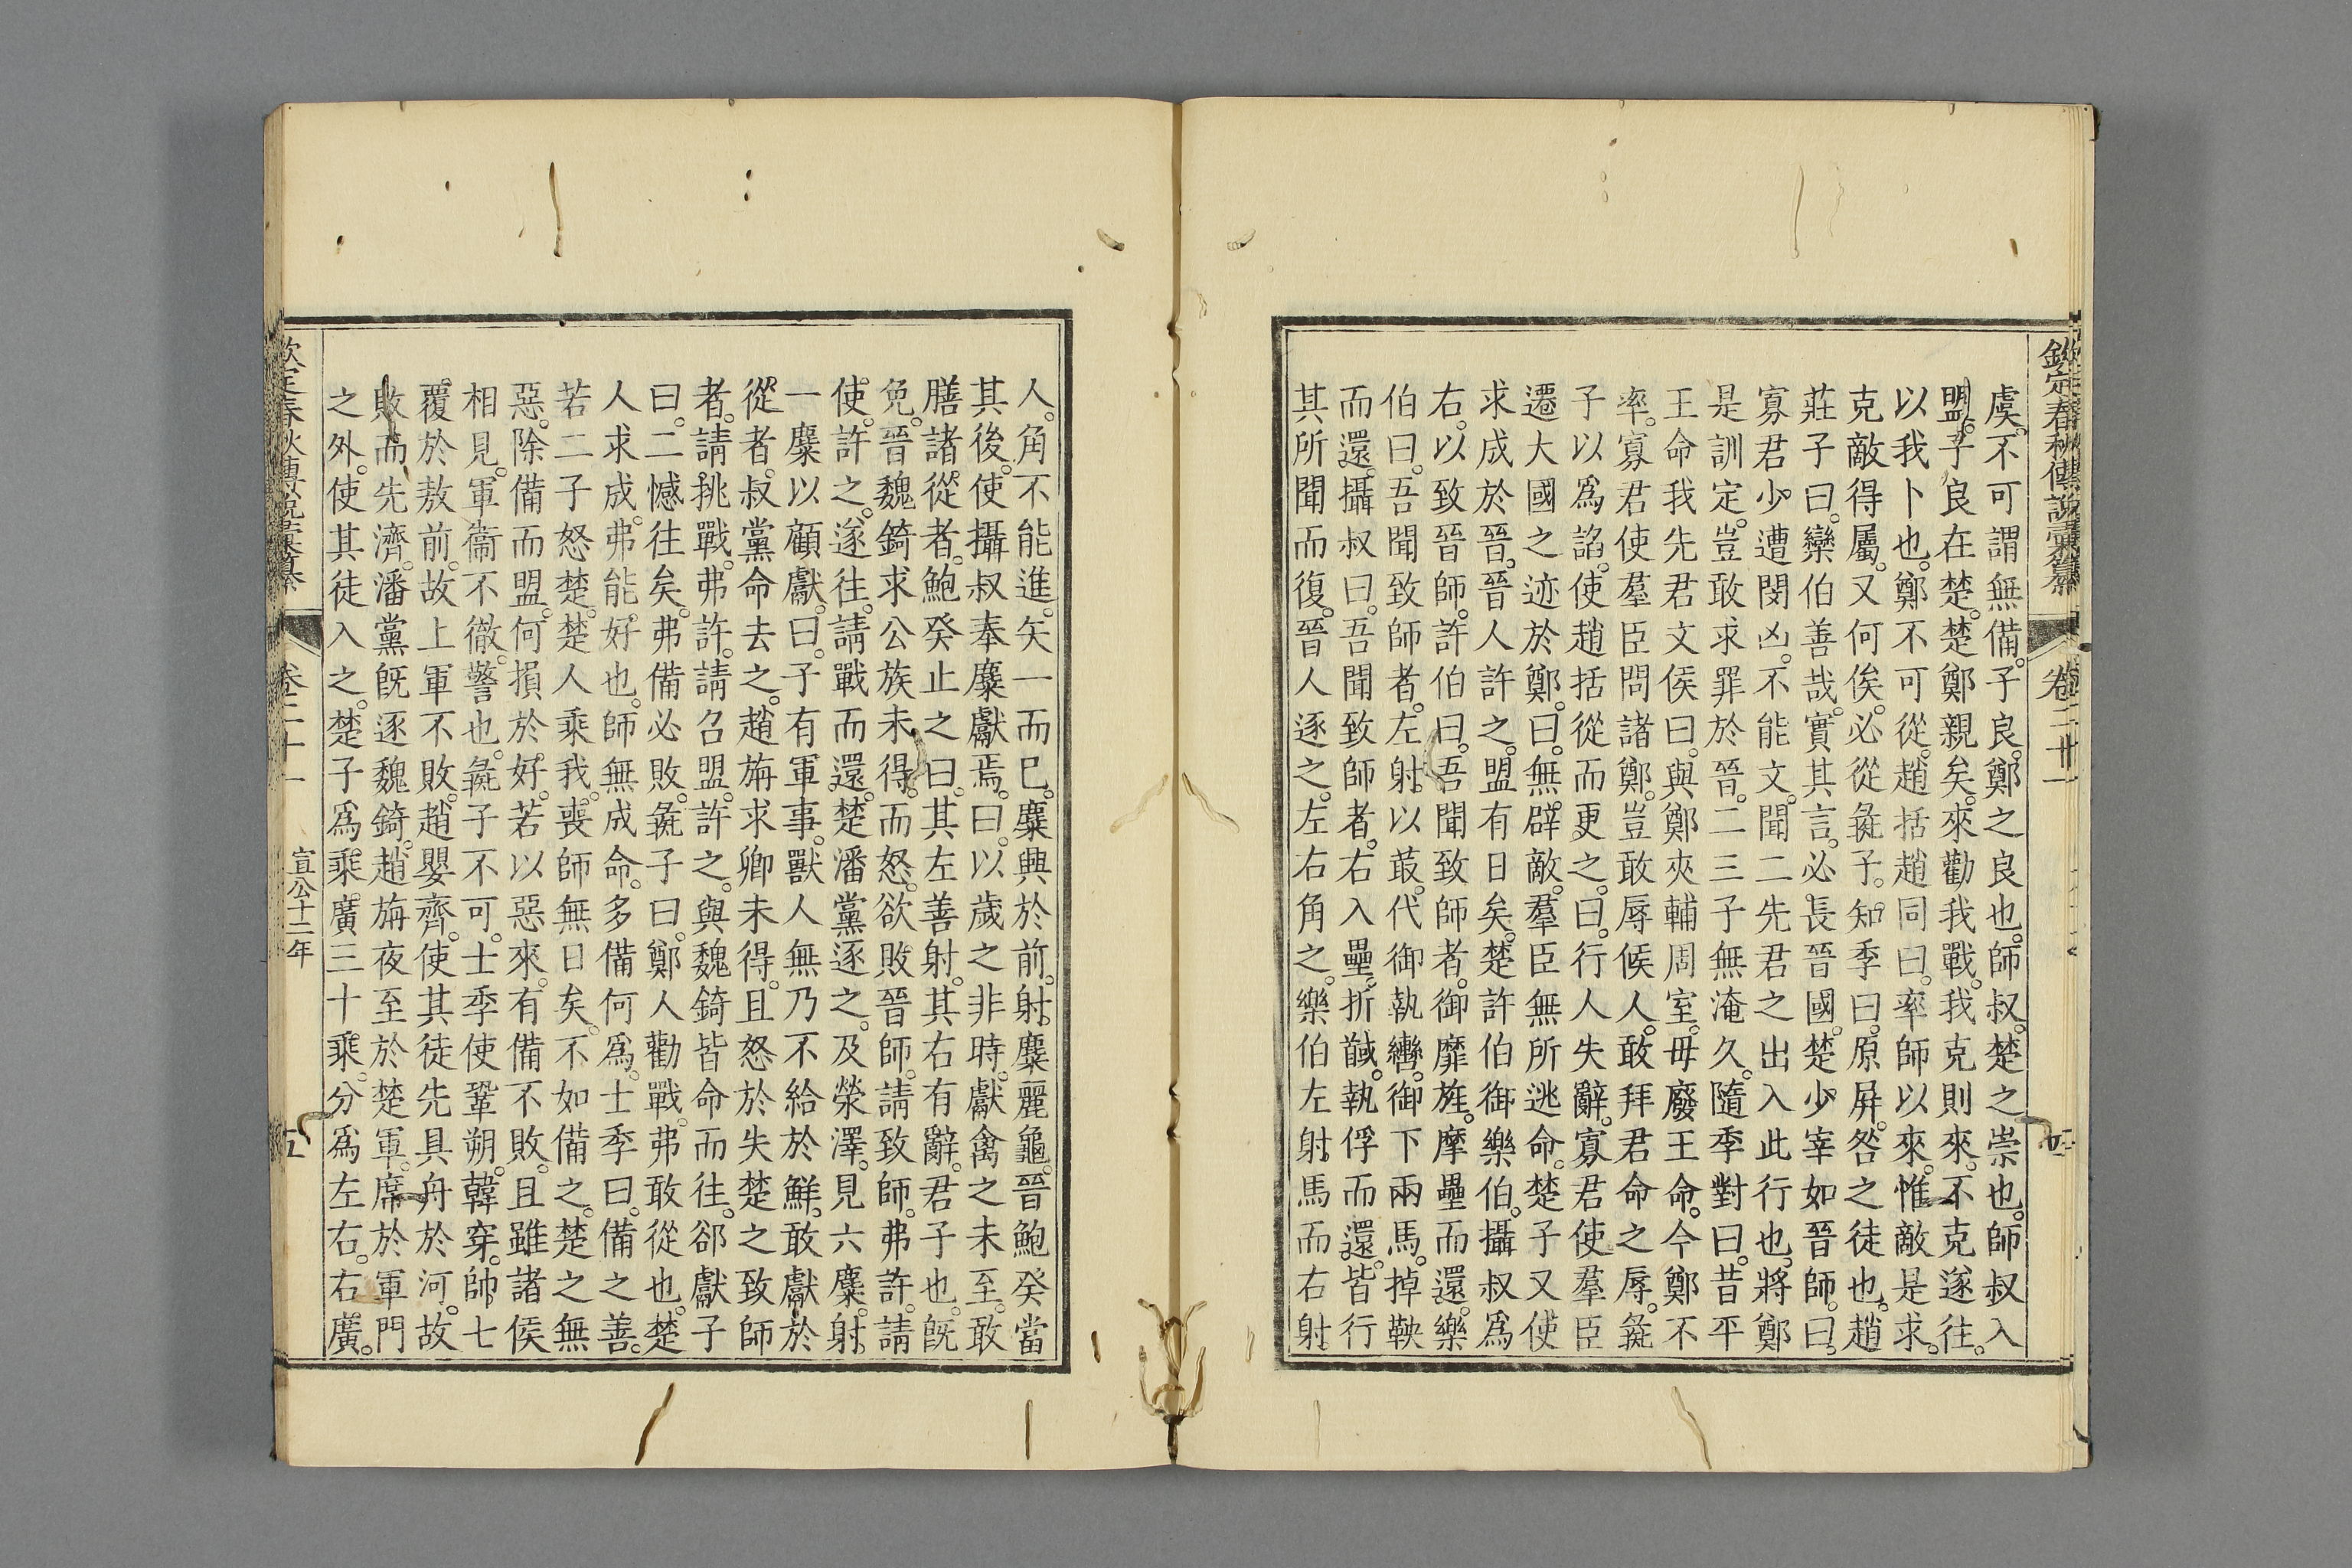 欽定春秋傳說彙纂
卷二十一
虞。不可謂無備。子良。鄭之良也。師叔。楚之崇也。師叔入
盟。子良在楚。楚鄭親矣。來勸我戰。我克則來。不克遂往。
以我卜也。鄭不可從。趙括趙同曰。率師以來。惟敵是求。
克敵得屬。又何俟。必從彘子。知季曰。原屏。咎之徒也。趙
莊子曰。欒伯善哉。實其言。必長晉國。楚少宰如晉師。曰。
寡君少遭閔凶。不能文。聞二先君之出入此行也。將鄭
是訓定。豈敢求罪於晉。二三子無淹久。隨季對曰。昔平
王命我先君文侯曰。與鄭夾輔周室。毋廢王命。今鄭不
率。寡君使羣臣問諸鄭。豈敢辱候人。敢拜君命之辱。彘
子以爲諂。使趙括從而更之。曰。行人失辭。寡君使羣臣
遷大國之迹於鄭。曰。無辟敵。羣臣無所逃命。楚子又使
求成於晉。晉人許之。盟有日矣。楚許伯御樂伯。攝叔爲
右。以致晉師。許伯曰。吾聞致師者。御靡旌。摩壘而還。樂
伯曰。吾聞致師者。左射。以菆。代御執轡。御下兩馬。掉鞅
而還。攝叔曰。吾聞致師者。右入壘。折馘。執俘而還。皆行
其所聞而復。晉人逐之。左右角之。樂伯左射馬而右射
人。角不能進。矢一而已。麋興於前。射麋麗龜。晉鮑癸當
其後。使攝叔奉麋獻焉。曰。以歲之非時。獻禽之未至。敢
膳諸從者。鮑癸止之曰。其左善射。其右有辭。君子也。旣
免。晉魏錡求公族未得。而怒。欲敗晉師。請致師。弗許。請
使。許之。遂往。請戰而還。楚潘黨逐之。及熒澤。見六麋。射
一麋以顧獻。曰。子有軍事。獸人無乃不給於鮮。敢獻於
從者。叔黨命去之。趙旃求卿未得。且怒於失楚之致師
者。請挑戰。弗許。請召盟。許之。與魏錡皆命而往。郤獻子
曰。二憾往矣。弗備必敗。彘子曰。鄭人勸戰。弗敢從也。楚
人求成。弗能好也。師無成命。多備何爲。士季曰。備之善。
若二子怒楚。楚人乘我。喪師無日矣。不如備之。楚之無
惡。除備而盟。何損於好。若以惡來。有備不敗。且雖諸侯
相見。軍衞不徹。警也。彘子不可。士季使鞏朔。韓穿。帥七
覆於敖前。故上軍不敗。趙嬰齊。使其徒先具舟於河。故
敗而先濟。潘黨旣逐魏錡。趙旃夜至於楚軍。席於軍門
之外。使其徒入之。楚子爲乘。廣三十乘。分爲左右。右廣。
欽定春秋傳說彙纂
卷二十一
宣公十二年
五